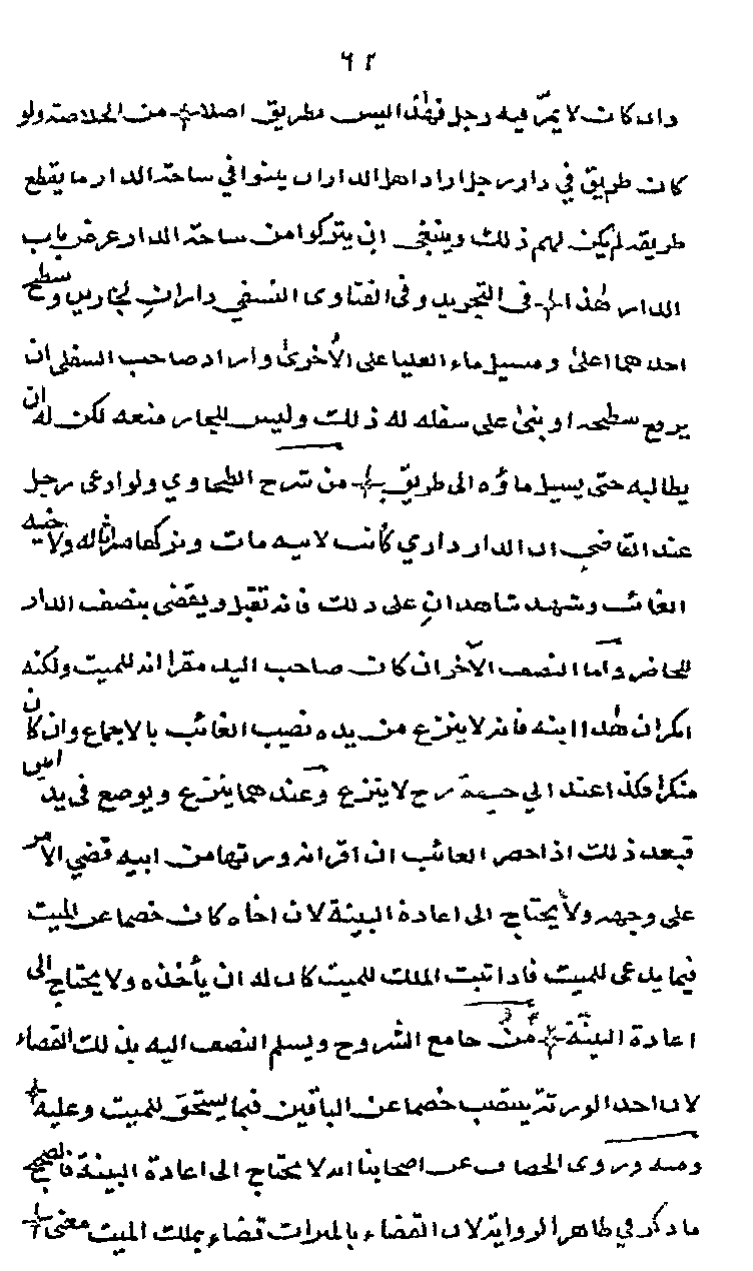 ٦٢
وان كان لا يمرّ فيه رجل فهٰذا ليس بطريق اصلا من الخلاصة ولو
كان طريق في دار رجل اراد اهل الدار ان يبنوا في ساحة الدار ما يقطع
طريقه لم يكن لهم ذلك وينبغي ان يتركوا من ساحة الدار عرض باب
الدار هٰذا في التجريد وفي الفتاوى النسفي داران لجارين وسطح
احدهما اعلىٰ ومسيل ماء العليا على الأخرىٰ واراد صاحب السفلى ان
يرفع سطحه او بنىٰ على سفله له ذلك وليس للجار منعه لكن له ان
يطالبه حتى يسيل ماؤه الى طريق من شرح الطحاوي ولو ادعى رجل
عند القاضي ان الدار داري كانت لابيه مات وتركها ميراثا له ولاخيه
الغائب وشهد شاهدان على ذلك فانه تقبل ويقضى بنصف الدار
للحاضر وأما النصف الآخر ان كان صاحب اليد مقرا انه للميت ولكنه
انكر ان هٰذا ابنه فانه لا ينزع من يده نصيب الغائب بالاجماع وان كان
منكرا فكذا عند ابي حنيفة رح لا ينزع وعندهما ينزع ويوضع في يد امين
فبعد ذلك اذا حضر الغائب ان اقر انه ورثها من ابيه قضي الامر
على وجهه ولا يحتاج الى اعادة البينة لان اخاه كان خصما عن الميت
فيما يدعى للميت فاذا ثبت الملك للميت كان له ان يأخذه ولا يحتاج الى
اعادة البينة من جامع الشروح ويسلم النصف اليه بذلك القضاء
لان احد الورثة ينتصب خصما عن الباقين فيما يستحق للميت وعليه
ومنه وروى الخصاف عن اصحابنا انه لا يحتاج الى اعادة البينة فالصحيح
ما ذكر في ظاهر الرواية لان القضاء بالميراث قضاء بملك الميت معنى